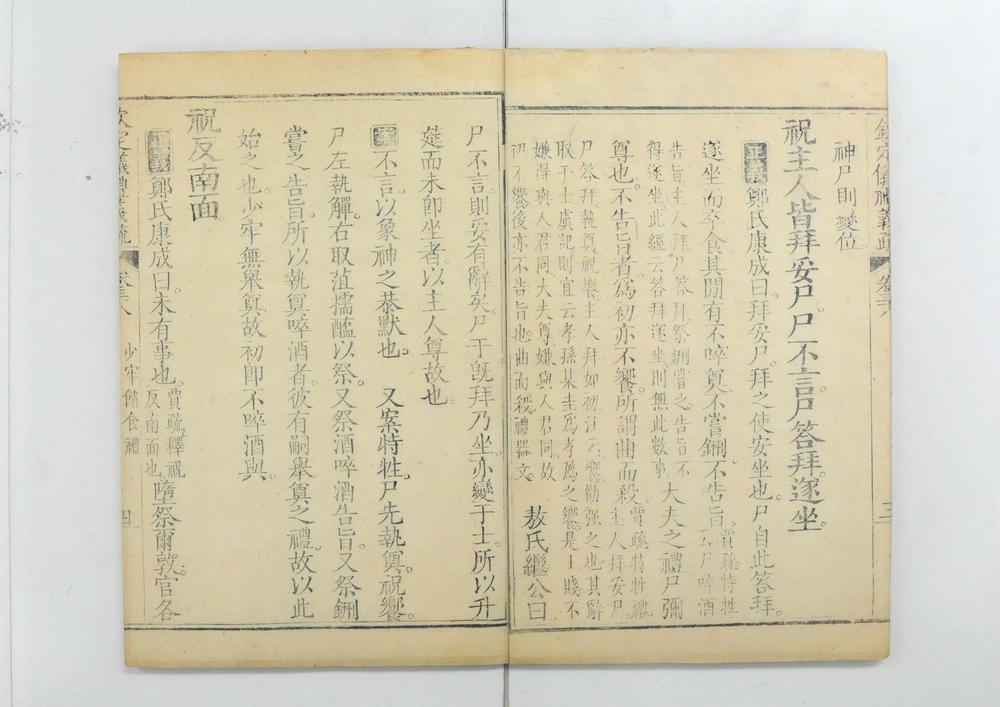 欽定儀禮義疏 卷三十八 三
神尸則變位
祝主人皆拜妥尸。尸不言尸答拜遂坐。
正義 鄭氏康成曰拜妥尸。拜之使安坐也。尸自此答拜。
遂坐而卒食其閒有不啐奠不嘗鉶不告旨。賈疏特牲云尸啐酒
告旨主人拜尸答拜祭鉶嘗之告旨不得遂坐此經云答拜遂坐則無此數事大夫之禮尸彌
尊也。不告旨者為初亦不饗。所謂曲而殺賈疏特牲禮主人拜妥尸
尸答拜執奠祝饗主人拜如初注云饗勸强之也其辭取于士虞記則宜云孝孫某圭為孝薦之饗是士賤不
嫌得與人君同大夫尊嫌與人君同故初不饗後亦不告旨也曲而殺禮器文敖氏繼公曰
尸不言則妥有辭矣尸于既拜乃坐亦變于士所以升
筵而未即坐者以主人尊故也
案 不言以象神之恭默也。又案特牲尸先執奠祝饗。
尸左執觶右取菹擩醢以祭。又祭酒啐酒告旨又祭鉶
嘗之告旨。所以執奠啐酒者。彼有嗣舉奠之禮。故以此
始之也。少牢無舉奠故初即不啐酒與。
祝反南面
正義 鄭氏康成曰未有事也。賈疏釋祝反南面也墮祭爾敦。官各
欽定儀禮義疏 卷三十八 少牢饋食禮 四